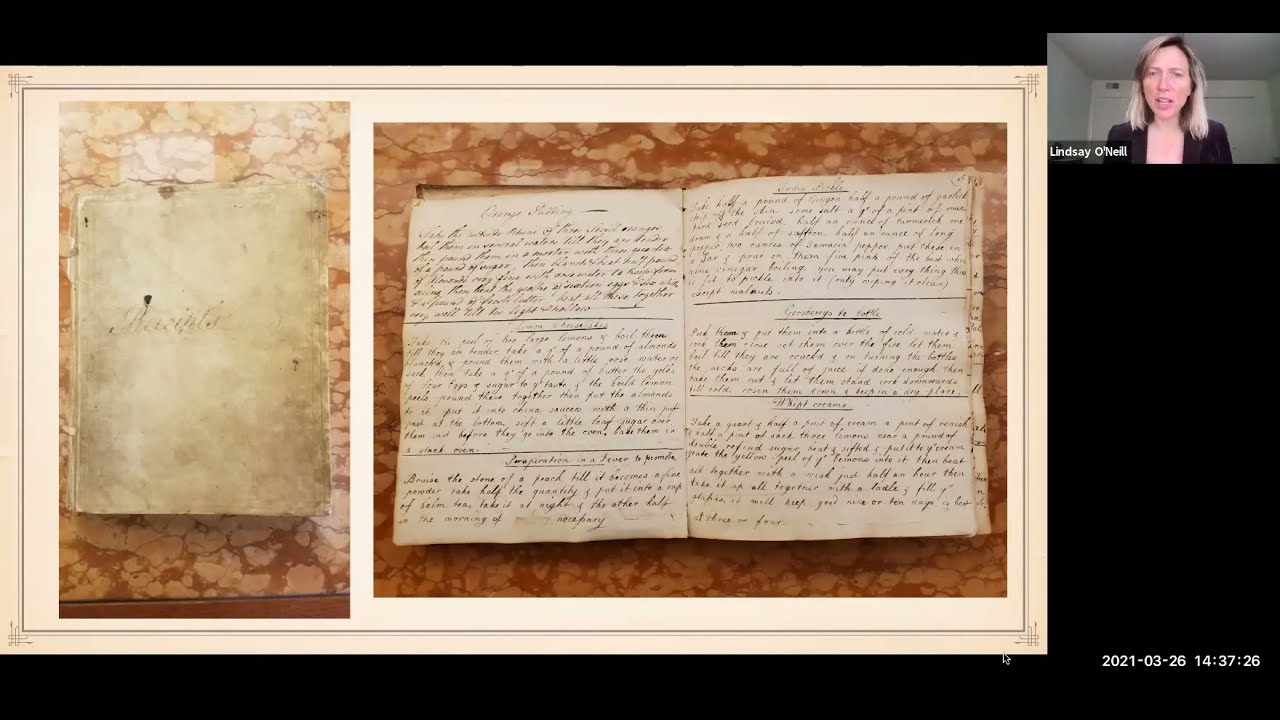 Receipts
Orange Pudding
Take the white rhine of three Sevil oranges
boil them in several waters till they are tender
then pound them in a morter with three quarters
of a pound of sugar then blanch & beat half pound
of almonds very fine with rose water to keep from
oiling then beat the yolks of sixteen eggs & six whites
& a pound of fresh butter beat all these together
very well till its light & hollow
Lemon Cheescakes
Take the peel of two large lemons & boil them
till they are tender, take a qr of a pound of almonds
blanch'd, & pound them with a little rose water or
sack, then take a qr of a pound of butter the yolks
of four Eggs & sugar to yr taste & the boild lemon
peels, pound these together then put the almonds
to it, put it into china saucers with a thin puff
past at the bottom, sift a little loaf sugar over
them just before they go into the oven, bake them in
a slack oven.
Perspiration in a Fever to promote
Bruise the stone of a peach till it becomes a fine
powder take half the quantity & put it into a cup
of balm tea, take it at night & the other half
in the morning if necessary
India Pickle
Take half a pound of Gingon half a pound of garlick
strip off the skin, some salt a qr of a pint of mus
tard seed bruised, half an ounce of turmerick one
dram & a half of saffron, half an ounce of long
pepper, two ounces of Jamaica pepper, put these in
a Jar & pour on them five pints of the best white
wine vinegar boiling. you may put every thing that
is fit to pickle into it (only wiping it clean)
except walnuts.
Goosberrys to bottle
Pick them & put them into a bottle of cold water &
cork them close set them over the fire let them
boil till they are coucd & on turning the bottles
the necks are full of juice if done enough then
take them out & let them stand cork downwards
till cold, rosen them down & keep in a dry place.
Whipt creams
Take a quart & half a pint of cream a pint of renish
& half a pint of sack three lemons near a pound of
double refined sugar, beat & sifted & put it to yr cream
grate the yellow peel of yr lemons into it then beat
all together with a wisk just half an hour then
take it up all together with a ladle & fill yr
it will keep good nine or ten days is best
at three or four.
Lindsay O'Neill
2021-03-26 14:37:26